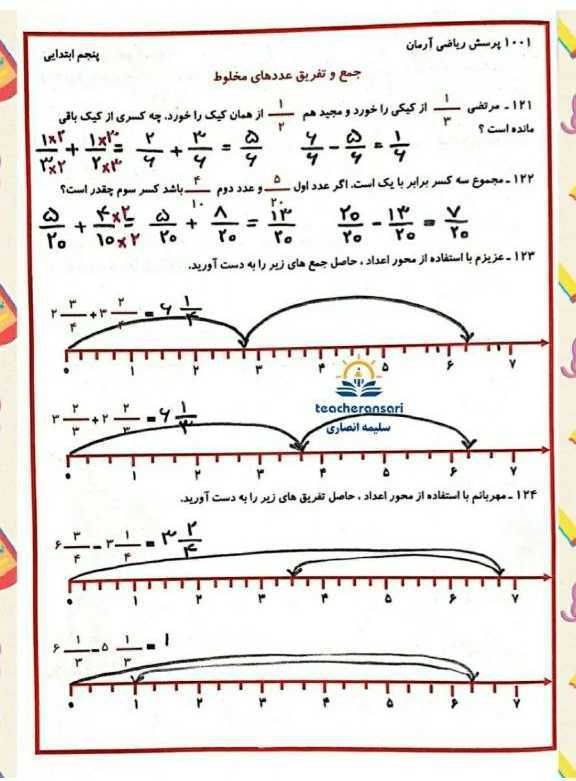 ۱۰۰۱ پرسش ریاضی آرمان
پنجم ابتدایی
جمع و تفریق عددهای مخلوط
۱۲۱ ـ مرتضی ۱/۳ از کیکی را خورد و مجید هم ۱/۲ از همان کیک را خورد، چه کسری از کیک باقی
مانده است ؟
۱×۲/۳×۲ + ۱×۳/۲×۳ = ۲/۶ + ۳/۶ = ۵/۶   ۶/۶ − ۵/۶ = ۱/۶
۱۲۲ ـ مجموع سه کسر برابر با یک است. اگر عدد اول ۵/۲۰ و عدد دوم ۴/۱۰ باشد کسر سوم چقدر است؟
۵/۲۰ + ۴×۲/۱۰×۲ = ۵/۲۰ + ۸/۲۰ = ۱۳/۲۰   ۲۰/۲۰ − ۱۳/۲۰ = ۷/۲۰
۱۲۳ ـ عزیزم با استفاده از محور اعداد ، حاصل جمع های زیر را به دست آورید.
۲ ۳/۴ + ۳ ۲/۴ = ۶ ۱/۴
۰ ۱ ۲ ۳ ۴ ۵ ۶ ۷
teacheransari
سلیمه انصاری
۳ ۲/۳ + ۲ ۲/۳ = ۶ ۱/۳
۰ ۱ ۲ ۳ ۴ ۵ ۶ ۷
۱۲۴ ـ مهربانم با استفاده از محور اعداد ، حاصل تفریق های زیر را به دست آورید.
۶ ۳/۴ − ۳ ۱/۴ = ۳ ۲/۴
۰ ۱ ۲ ۳ ۴ ۵ ۶ ۷
۶ ۱/۳ − ۵ ۱/۳ = ۱
۰ ۱ ۲ ۳ ۴ ۵ ۶ ۷